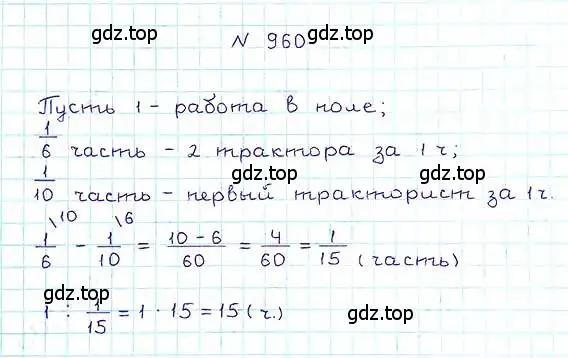 gdz.top
N 960 gdz.top
Пусть 1 - работа в поле;
1/6 часть - 2 трактора за 1 ч;
gdz.top gdz.top
1/10 часть - первый тракторист за 1 ч.
1/6 \10 - 1/10 \6 = 10 - 6/60 = 4/60 = 1/15 (часть)
gdz.top
1 : 1/15 = 1 · 15 = 15 (ч.)
gdz.top